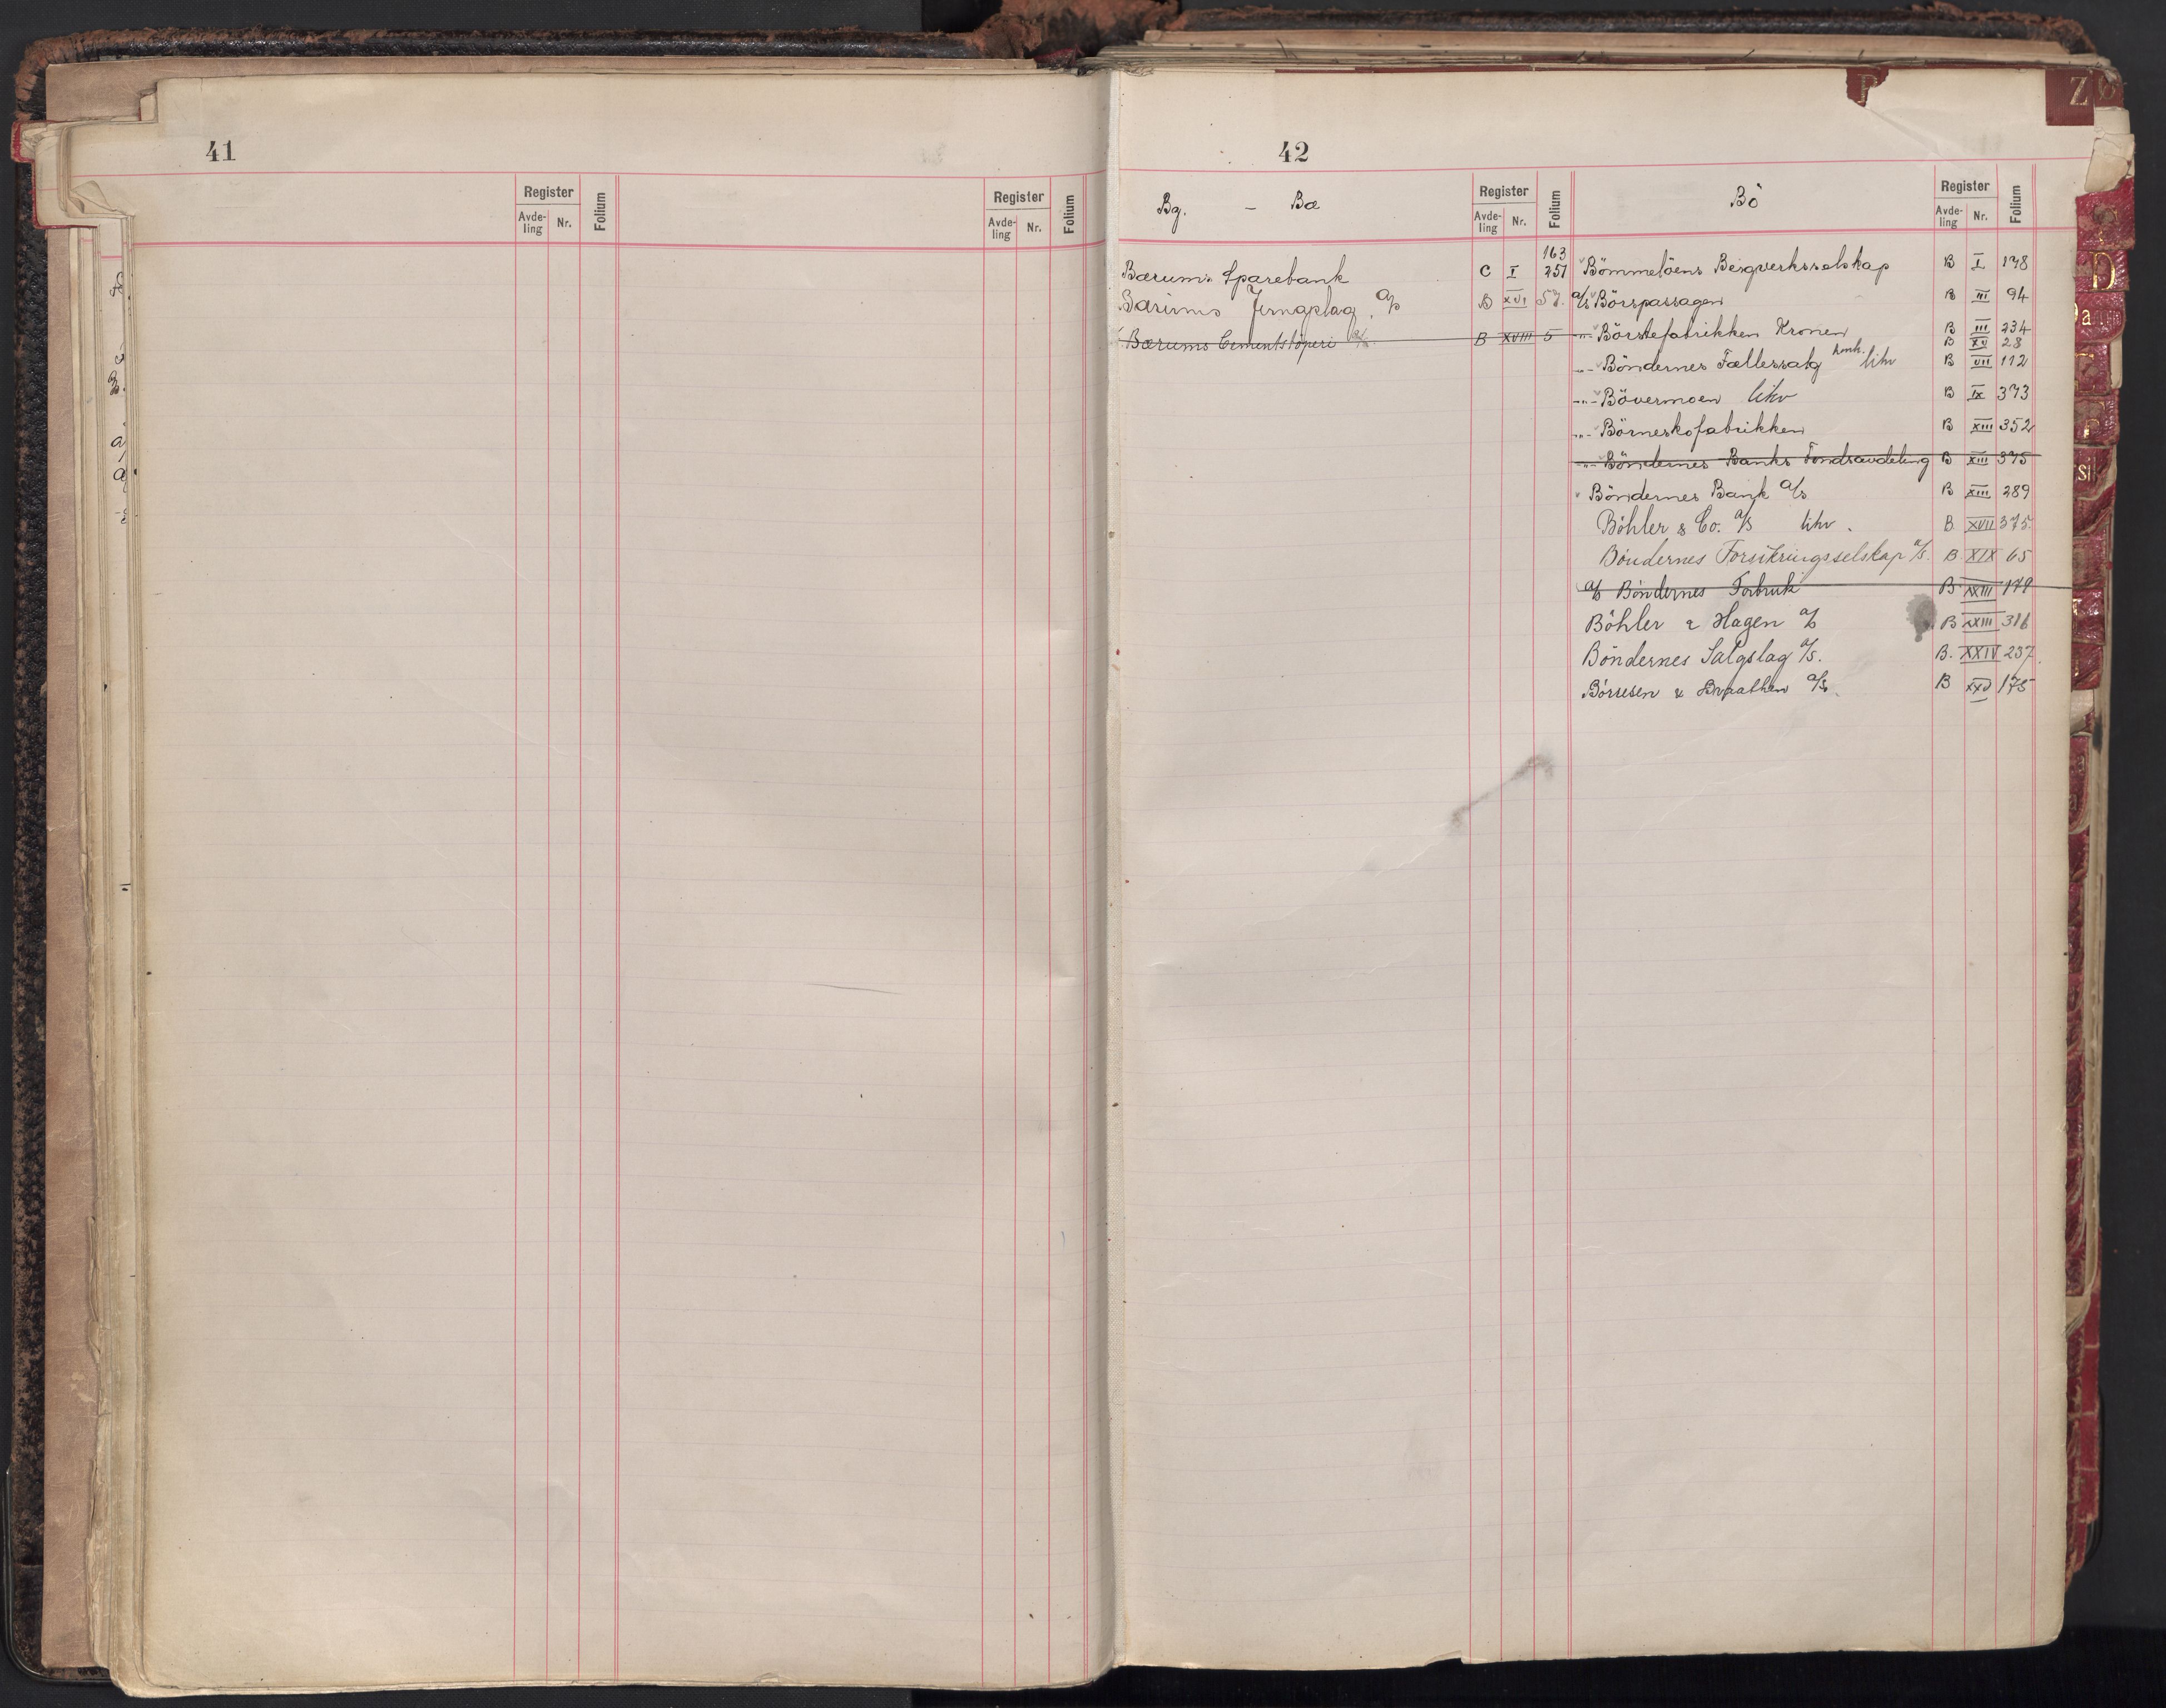 41
Register
Avde-
ling
Nr.
Folium
Register
Avde-
ling
Nr.
Folium
42
P
Z
Ø
D
Bg. - Bæ
Register
Avde-
ling
Nr.
Folium
Bærums Sparebank C I 163 251
Bærums Jernoplag, A/S B XVI 57.
Bærums Cementstøperi A/S B XVIII 5
Bö
Register
Avde-
ling
Nr.
Folium
Bömmelöens Bergverksselskap B I 178
A/S Börspassagen B III 94
-"- Börstefabrikken Kronen B III 234
B XV 28
-"- Böndernes Fællessalg konk. likv B VII 112
-"- Bövermoen likv B IX 373
-"- Börneskofabrikken B XIII 352
-"- Böndernes Banks Fondsavdeling B XIII 375
Böndernes Bank A/S B XIII 289
Böhler & Co. A/S likv. B XVII 375.
Böndernes Forsikringsselskap A/S. B XIX 65
A/S Böndernes Forbruk B XXIII 179
Böhler & Hagen A/S B XXIII 316
Böndernes Salgslag A/S. B. XXIV 237.
Börresen & Braathen A/S. B XXV 175